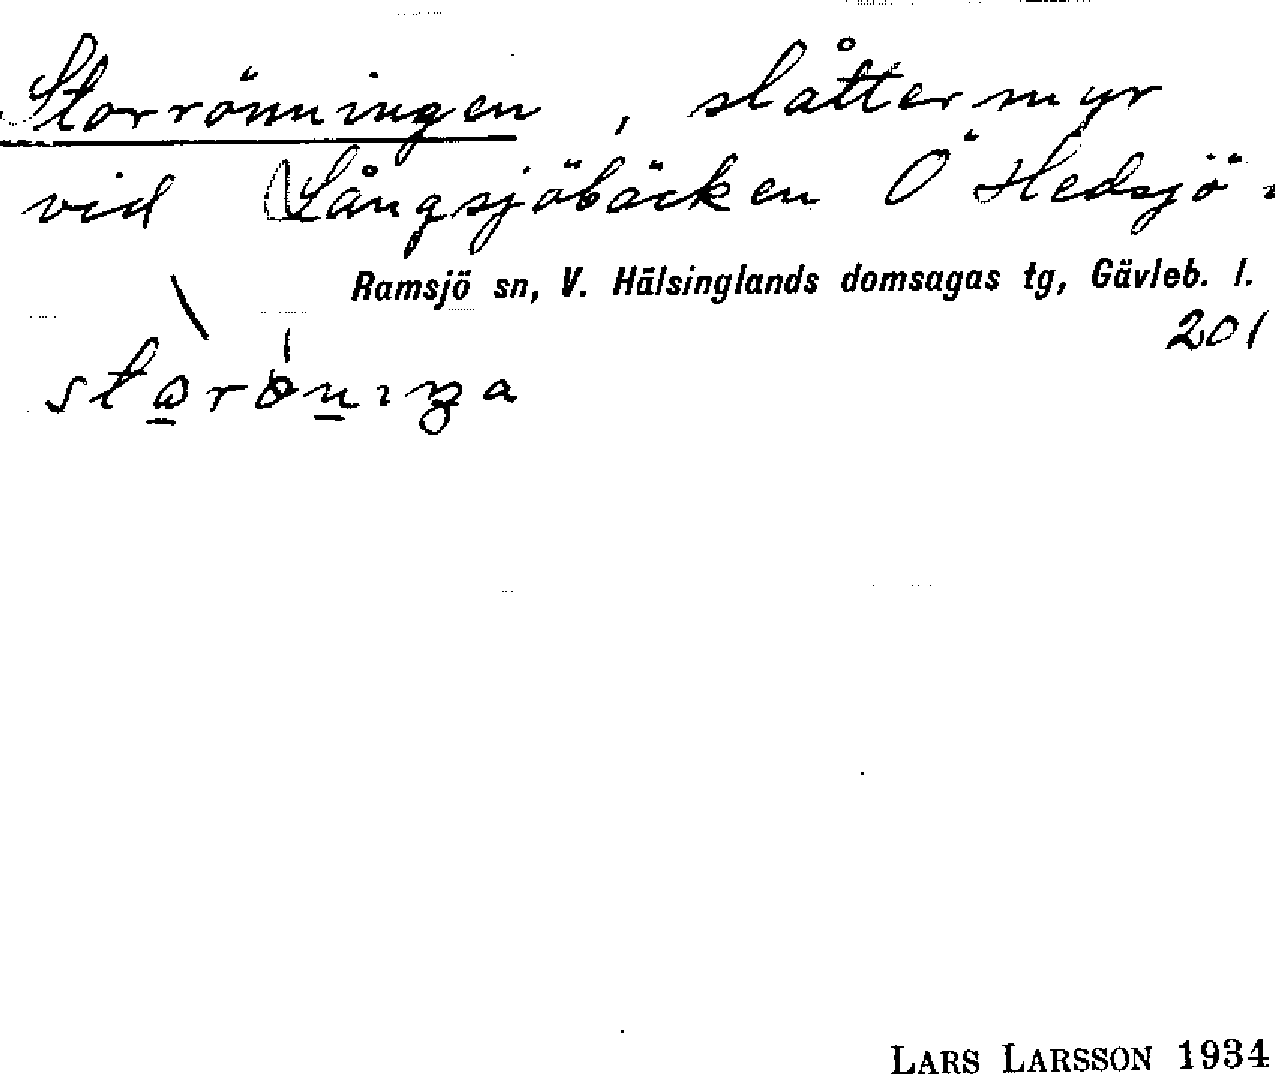 Storrönningen, slåttermyr
vid Långsjöbäcken Ö Hedsjö.
Ramsjö sn, V. Hälsinglands domsagas tg, Gävleb. l.
201
LARS LARSSON 1934